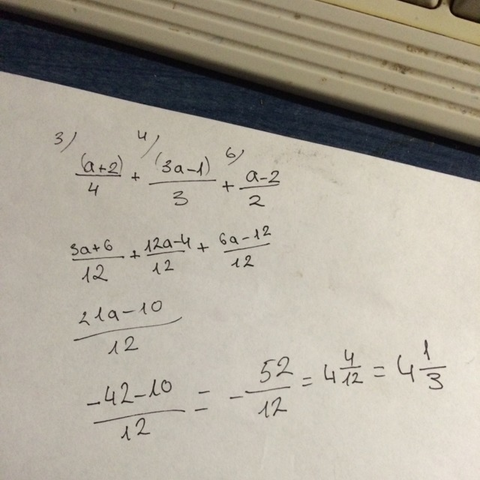 3) 4) 6)
(a+2)/4 + (3a-1)/3 + a-2/2
3a+6/12 + 12a-4/12 + 6a-12/12
21a-10/12
-42-10/12 = - 52/12 = 4 4/12 = 4 1/3